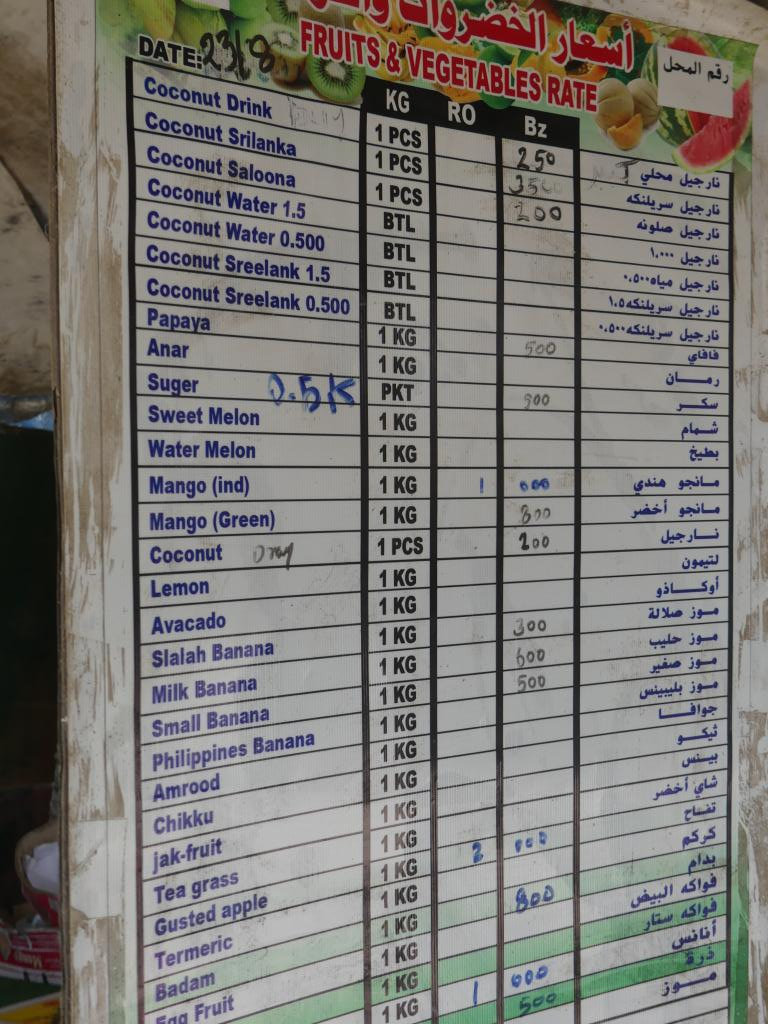 أسعار الخضروات
FRUITS & VEGETABLES RATE
رقم المحل
DATE: 23/8
KG RO Bz
Coconut Drink 1 PCS 250 نارجيل محلي
Coconut Srilanka 1 PCS 350 نارجيل سريلنكه
Coconut Saloona 1 PCS 200 نارجيل صلونه
Coconut Water 1.5 BTL نارجيل ١.٠٠٠
Coconut Water 0.500 BTL نارجيل مياه٠.٥٠٠
Coconut Sreelank 1.5 BTL نارجيل سريلنكه١.٥
Coconut Sreelank 0.500 BTL نارجيل سريلنكه٠.٥٠٠
Papaya 1 KG 500 فافاي
Anar 1 KG رمان
Suger 0.5K PKT سكر
Sweet Melon 1 KG شمام
Water Melon 1 KG بطيخ
Mango (ind) 1 KG 1 000 مانجو هندي
Mango (Green) 1 KG 800 مانجو أخضر
Coconut Dray 1 PCS 200 نارجيل
Lemon 1 KG لتيمون
Avacado 1 KG أوكادو
Slalah Banana 1 KG 300 موز صلالة
Milk Banana 1 KG 600 موز حليب
Small Banana 1 KG 500 موز صغير
Philippines Banana 1 KG موز بليبينس
Amrood 1 KG جوافا
Chikku 1 KG ثيكو
jak-fruit 1 KG بينس
Tea grass 1 KG شاي أخضر
Gusted apple 1 KG 2 000 تفاح
Termeric 1 KG كركم
Badam 1 KG 800 بدام
Egg Fruit 1 KG فواكه البيض
1 KG فواكه ستار
1 KG 1 000 أنانس
500 ذرة
موز